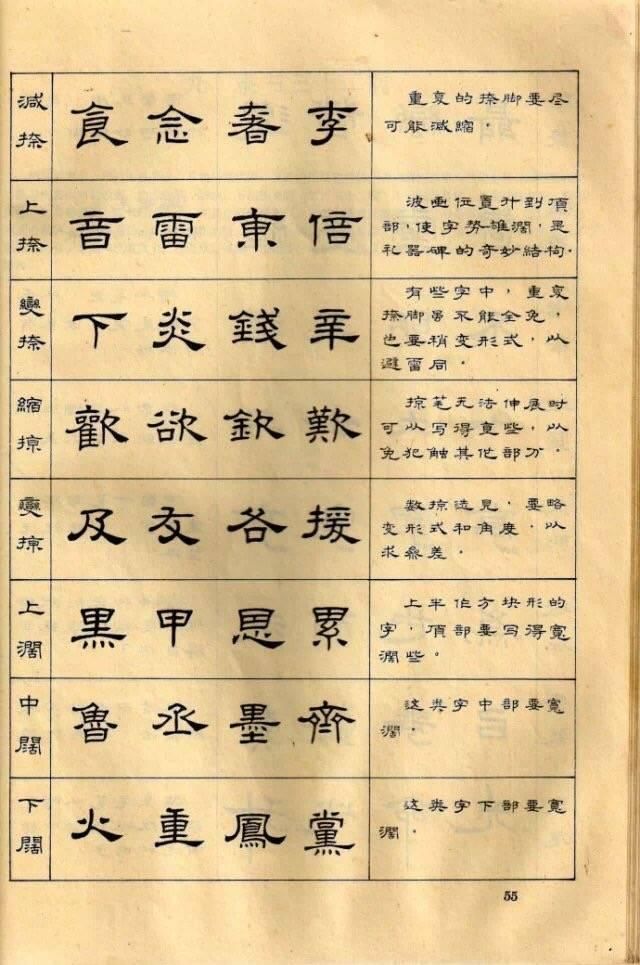 減捺
食 念 奢 李
重复的捺脚要尽
可能減縮．
上捺
音 雷 東 倍
波画位置升到頂
部，使字势雄濶，是
礼器碑的奇妙結构．
變捺
下 炎 錢 辛
有些字中，重复
捺脚虽不能全免，
也要稍变形式，以
避雷同
縮掠
歡 欲 欽 歎
掠笔无法伸展时
可以写得直些，以
免犯触其他部分．
變掠
及 友 各 援
数掠迭見，要略
变形式和角度，以
求參差．
上濶
黑 甲 思 累
上半作方块形的
字，頂部要写得寬
濶些。
中闊
魯 丞 墨 齊
这类字中部要寬
濶．
下闊
火 重 鳳 黨
这类字下部要寬
濶．
55